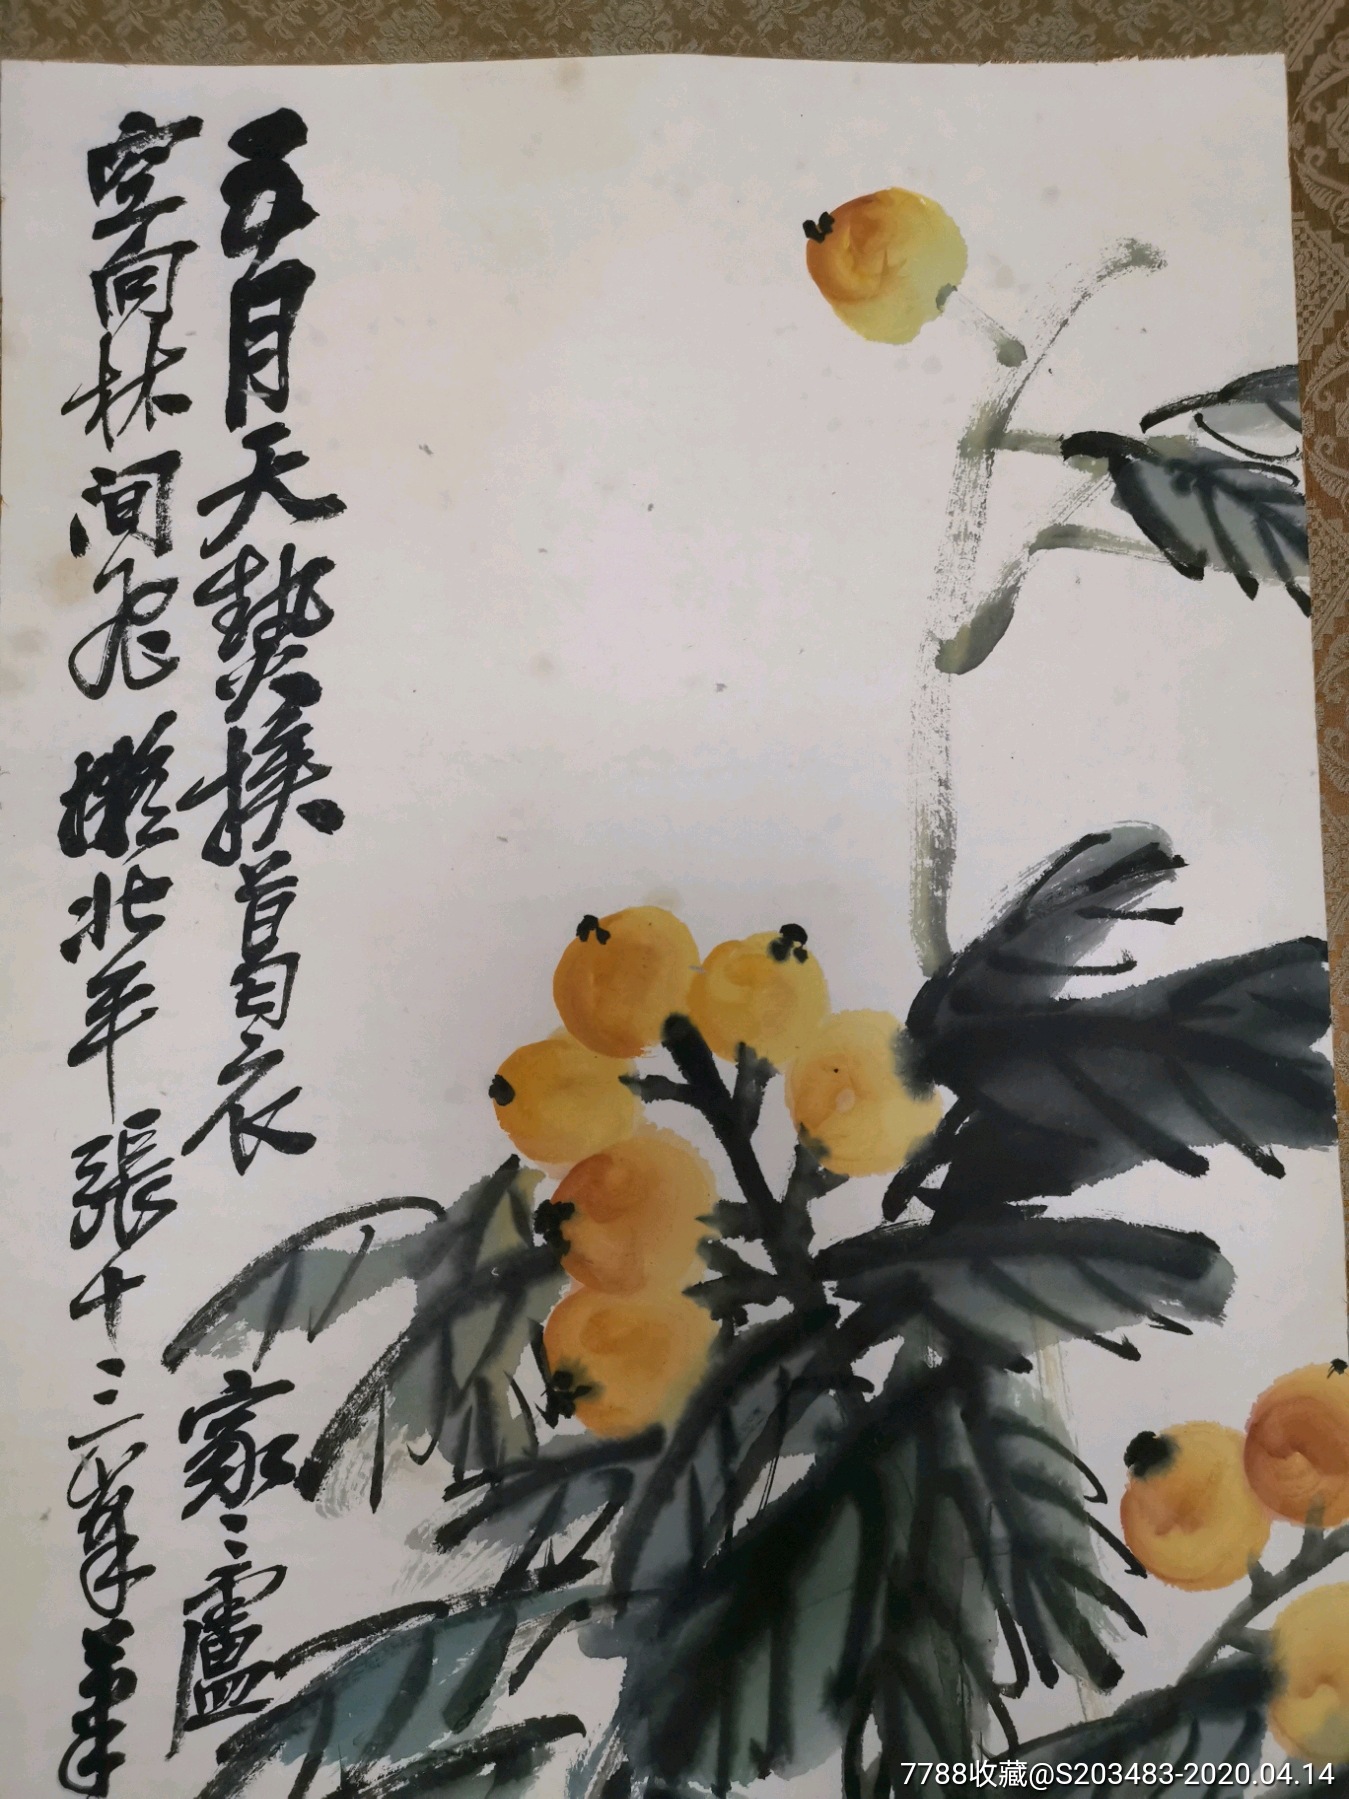 五月天熱換葛衣家〻盧
空向林間飛擬北平張十三峯筆
7788收藏@S203483-2020.04.14